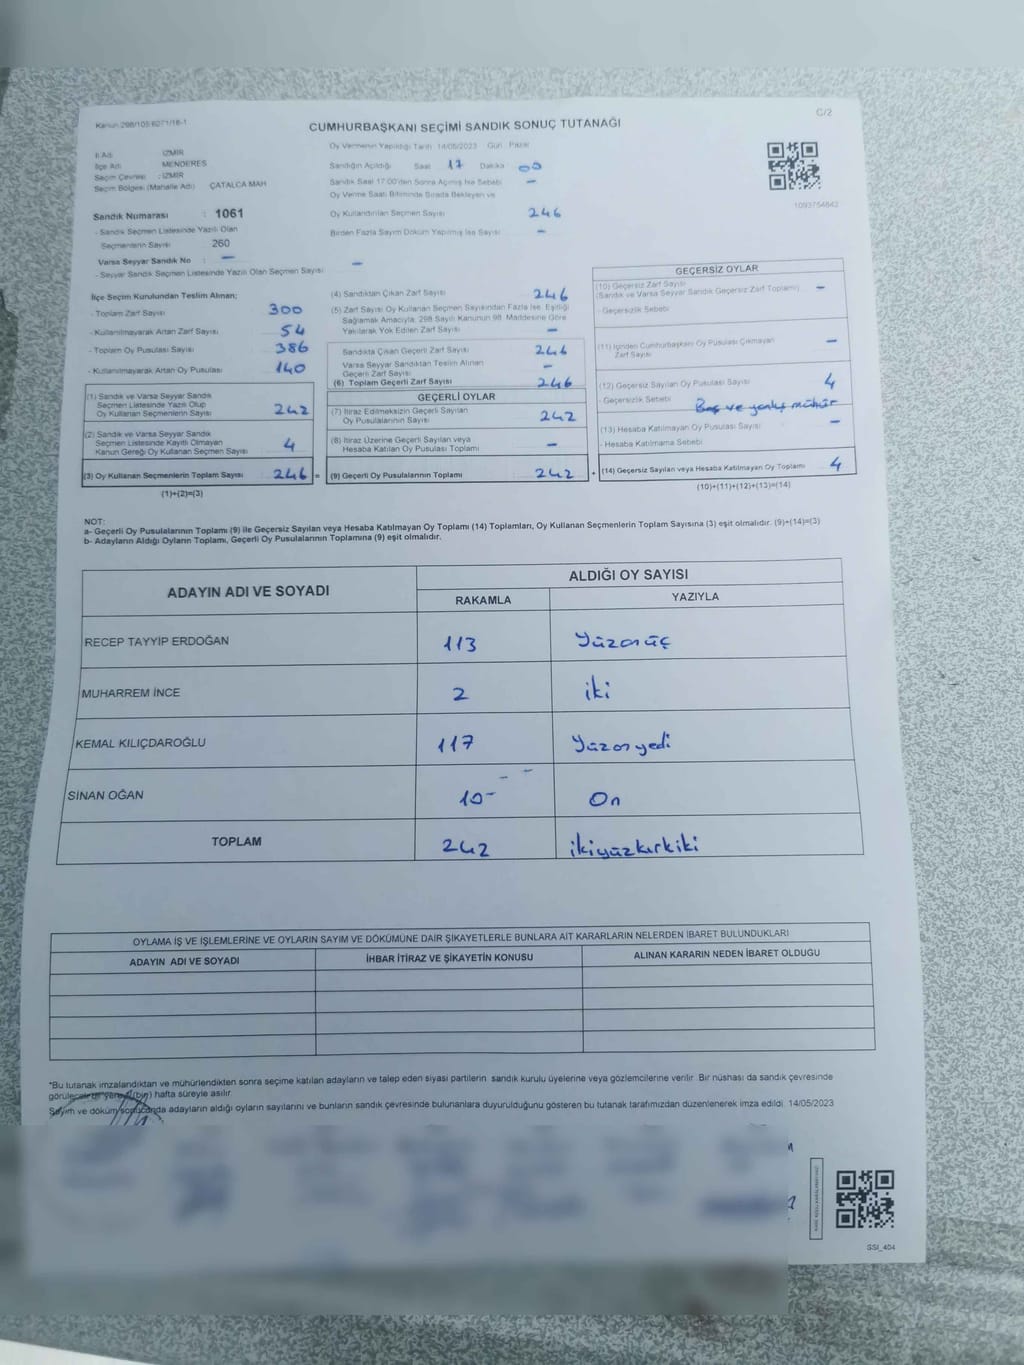 Kanun:298/105 6271/18-1
C/2
CUMHURBAŞKANI SEÇİMİ SANDIK SONUÇ TUTANAĞI
İl Adı : İZMİR
İlçe Adı : MENDERES
Seçim Çevresi : İZMİR
Seçim Bölgesi (Mahalle Adı) ÇATALCA MAH
Sandık Numarası : 1061
- Sandık Seçmen Listesinde Yazılı Olan
Seçmenlerin Sayısı 260
Varsa Seyyar Sandık No : -
- Seyyar Sandık Seçmen Listesinde Yazılı Olan Seçmen Sayısı -
Oy Vermenin Yapıldığı Tarih 14/05/2023 Gün Pazar
Sandığın Açıldığı Saat 17 Dakika 00
Sandık Saat 17:00'den Sonra Açılmış İse Sebebi -
Oy Verme Saati Bitiminde Sırada Bekleyen ve
Oy Kullandırılan Seçmen Sayısı 246
Birden Fazla Sayım Döküm Yapılmış İse Sayısı -
1093754642
İlçe Seçim Kurulundan Teslim Alınan;
- Toplam Zarf Sayısı 300
- Kullanılmayarak Artan Zarf Sayısı 54
- Toplam Oy Pusulası Sayısı 386
- Kullanılmayarak Artan Oy Pusulası 140
(1) Sandık ve Varsa Seyyar Sandık
Seçmen Listesinde Yazılı Olup
Oy Kullanan Seçmenlerin Sayısı 242
(2) Sandık ve Varsa Seyyar Sandık
Seçmen Listesinde Kayıtlı Olmayan
Kanun Gereği Oy Kullanan Seçmen Sayısı 4
(3) Oy Kullanan Seçmenlerin Toplam Sayısı 246 =
(1)+(2)=(3)
(4) Sandıktan Çıkan Zarf Sayısı 246
(5) Zarf Sayısı Oy Kullanan Seçmen Sayısından Fazla İse, Eşitliği
Sağlamak Amacıyla, 298 Sayılı Kanunun 98. Maddesine Göre
Yakılarak Yok Edilen Zarf Sayısı -
Sandıkta Çıkan Geçerli Zarf Sayısı 246
Varsa Seyyar Sandıktan Teslim Alınan
Geçerli Zarf Sayısı -
(6) Toplam Geçerli Zarf Sayısı 246
GEÇERLİ OYLAR
(7) İtiraz Edilmeksizin Geçerli Sayılan
Oy Pusulalarının Sayısı 242
(8) İtiraz Üzerine Geçerli Sayılan veya
Hesaba Katılan Oy Pusulası Toplamı -
(9) Geçerli Oy Pusulalarının Toplamı 242 +
GEÇERSİZ OYLAR
(10) Geçersiz Zarf Sayısı
(Sandık ve Varsa Seyyar Sandık Geçersiz Zarf Toplamı) -
- Geçersizlik Sebebi
(11) İçinden Cumhurbaşkanı Oy Pusulası Çıkmayan
Zarf Sayısı -
(12) Geçersiz Sayılan Oy Pusulası Sayısı 4
- Geçersizlik Sebebi Boş ve yanlış mühür
(13) Hesaba Katılmayan Oy Pusulası Sayısı -
- Hesaba Katılmama Sebebi
(14) Geçersiz Sayılan veya Hesaba Katılmayan Oy Toplamı 4
(10)+(11)+(12)+(13)=(14)
NOT:
a- Geçerli Oy Pusulalarının Toplamı (9) ile Geçersiz Sayılan veya Hesaba Katılmayan Oy Toplamı (14) Toplamları, Oy Kullanan Seçmenlerin Toplam Sayısına (3) eşit olmalıdır. (9)+(14)=(3)
b- Adayların Aldığı Oyların Toplamı, Geçerli Oy Pusulalarının Toplamına (9) eşit olmalıdır.
ADAYIN ADI VE SOYADI
ALDIĞI OY SAYISI
RAKAMLA YAZIYLA
RECEP TAYYİP ERDOĞAN 113 Yüzonüç
MUHARREM İNCE 2 iki
KEMAL KILIÇDAROĞLU 117 Yüzonyedi
SİNAN OĞAN 10- On
TOPLAM 242 ikiyüzkırkiki
OYLAMA İŞ VE İŞLEMLERİNE VE OYLARIN SAYIM VE DÖKÜMÜNE DAİR ŞİKAYETLERLE BUNLARA AİT KARARLARIN NELERDEN İBARET BULUNDUKLARI
ADAYIN ADI VE SOYADI İHBAR İTİRAZ VE ŞİKAYETİN KONUSU ALINAN KARARIN NEDEN İBARET OLDUĞU
*Bu tutanak imzalandıktan ve mühürlendikten sonra seçime katılan adayların ve talep eden siyasi partilerin sandık kurulu üyelerine veya gözlemcilerine verilir. Bir nüshası da sandık çevresinde
görülecek bir yere 1(bir) hafta süreyle asılır.
Sayım ve döküm sonucunda adayların aldığı oyların sayılarını ve bunların sandık çevresinde bulunanlara duyurulduğunu gösteren bu tutanak tarafımızdan düzenlenerek imza edildi. 14/05/2023
SSI_404